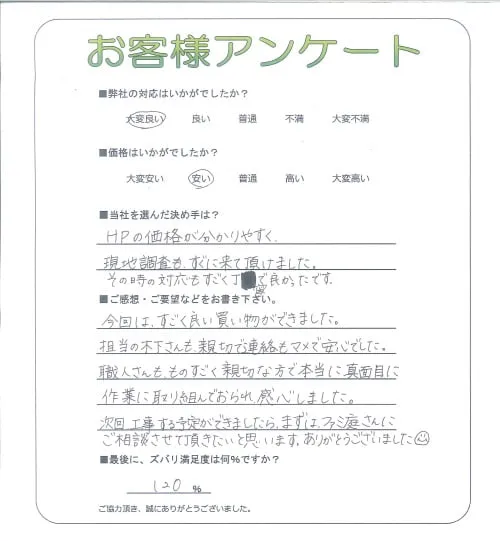 お客様アンケート
■弊社の対応はいかがでしたか？
大変良い 良い 普通 不満 大変不満
■価格はいかがでしたか？
大変安い 安い 普通 高い 大変高い
■当社を選んだ決め手は？
HPの価格が分かりやすく、
現地調査も、すぐに来て頂けました。
その時の対応もすごく丁寧で良かったです。
■ご感想・ご要望などをお書き下さい。
今回は、すごく良い買い物ができました。
担当の木下さんも、親切で連絡もマメで安心でした。
職人さんも、ものすごく親切な方で本当に真面目に
作業に取り組んでおられ、感心しました。
次回工事する予定ができましたら、まずは、ファミ庭さんに
ご相談させて頂きたいと思います。ありがとうございました☺
■最後に、ズバリ満足度は何%ですか？
120 %
ご協力頂き、誠にありがとうございました。